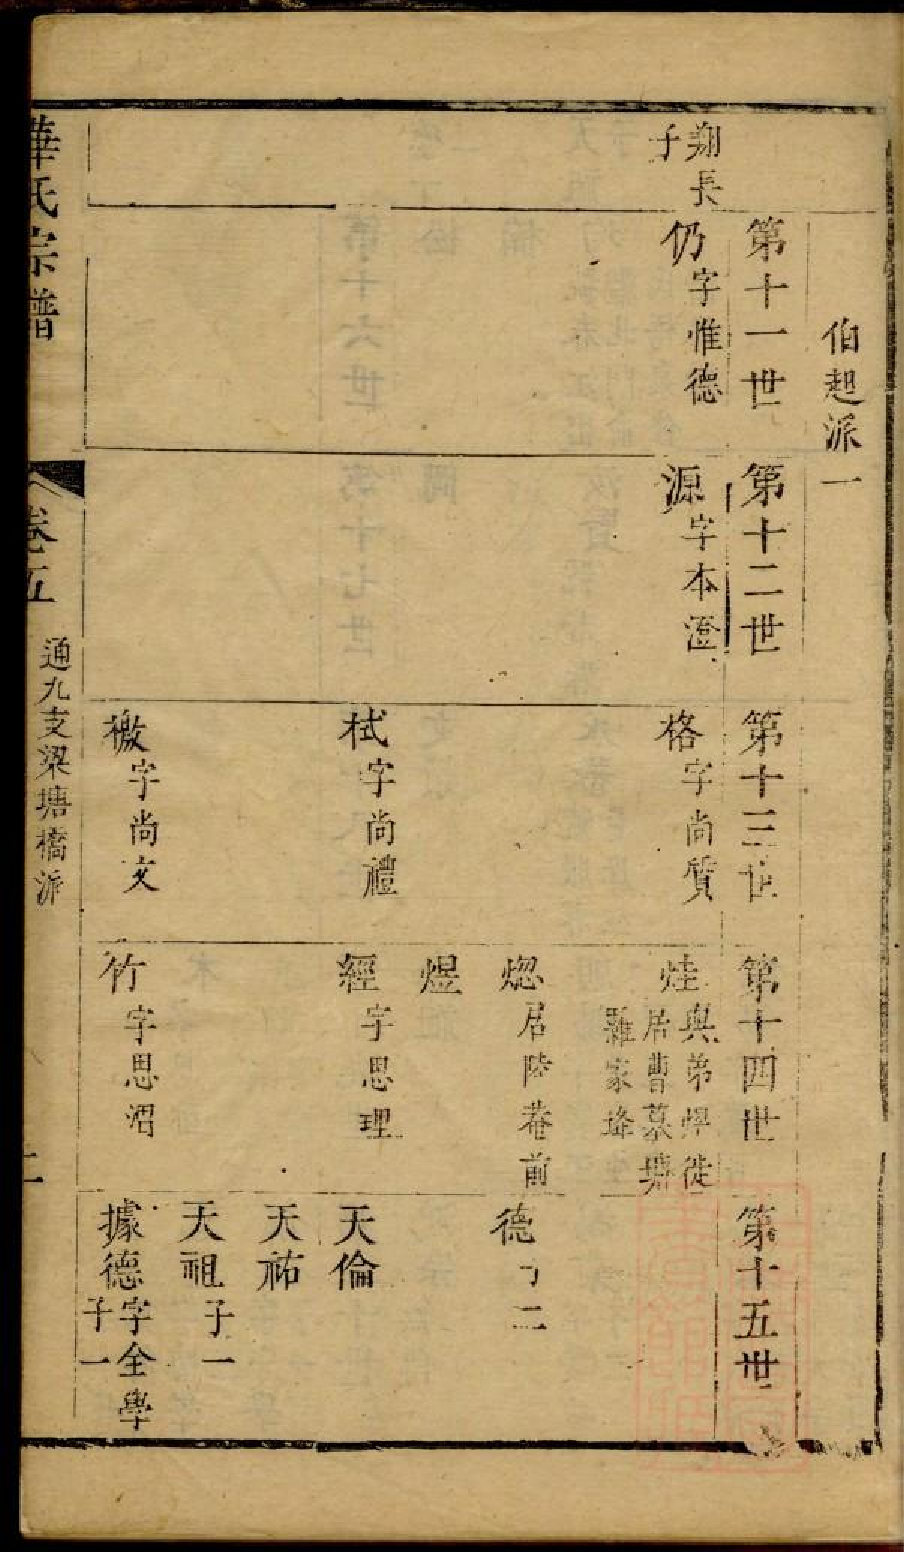 伯起派一
翔長子
第十一世
仍字惟德
第十二世
源字本澄
第十三世
格字尚質
栻字尚禮
檄字尚文
第十四世
烓與弟焊徙居曹墓塘羅家埄
熜居陸菴前
煜
經字思理
竹字思沼
第十五世
德子二
天倫
天祐
天祖子一
據德字全學子一
華氏宗譜
卷五
通九支梁塘橋派